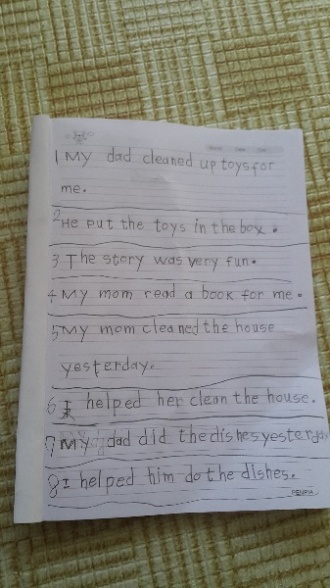 1 My dad cleaned up toys for
me.
2 He put the toys in the box.
3 The story was very fun.
4 My mom read a book for me.
5 My mom cleaned the house
yesterday.
6 I helped her clean the house.
7 My dad did the dishes yesterday
8 I helped him do the dishes.